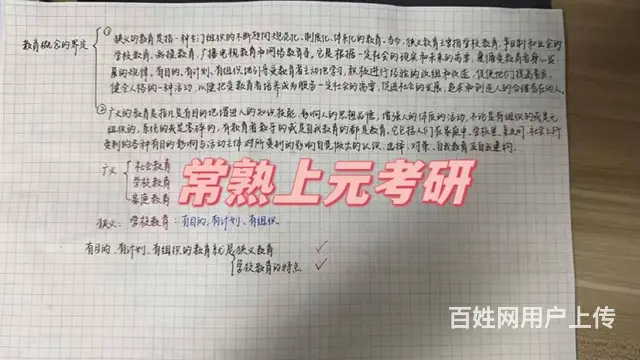 ①狭义的教育是指一种专门组织的不断趋向规范化、制度化、体系化的教育。当今,狭义教育主要指学校教育,
学校教育、函授教育、广播电视教育和网络教育等。它是根据一定社会的现实和未来的需要,遵循受教育者身心发
展的规律,有目的、有计划、有组织地引导受教育主动地学习,积极进行经验的改组和改造,促使他们提高素质、
健全人格的一种活动,以便把受教育者培养成为服务一定社会的需要,促进社会的发展,追求和创造人的合理存在的人。
教育概念的界定
②广义的教育是指凡是有目的地增进人的知识技能、影响人的思想品德、增强人的体质的活动,不论是有组织的或是无
组织的,系统的或是零碎的,有教育者教导的或是自我教育的都是教育。它包括人们在家庭中、学校里、
受到的各种有目的影响
广义 社会教育
学校教育
家庭教育
常熟上元考研
狭义:学校教育:有目的、有计划、有组织
有目的、有计划、有组织的教育就是狭义教育 ✓
学校教育的特点 ✓
百姓网用户上传